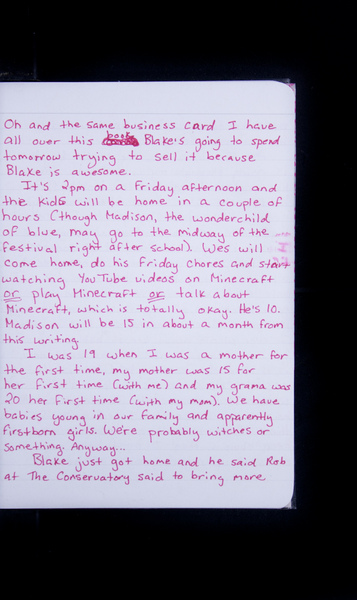 Oh and the same business card I have
all over this book Blake's going to spend
tomorrow trying to sell it because
Blake is awesome.
It's 2pm on a Friday afternoon and
the kids will be home in a couple of
hours (though Madison, the wonderchild
of blue, may go to the midway of the
festival right after school). Wes will
come home, do his Friday chores and start
watching YouTube videos on Minecraft
or play Minecraft or talk about
Minecraft, which is totally okay. He's 10.
Madison will be 15 in about a month from
this writing.
I was 19 when I was a mother for
the first time, my mother was 15 for
her first time (with me) and my grama was
20 her first time (with my mom). We have
babies young in our family and apparently
firstborn girls. We're probably witches or
something. Anyway...
Blake just got home and he said Rob
at The Conservatory said to bring more